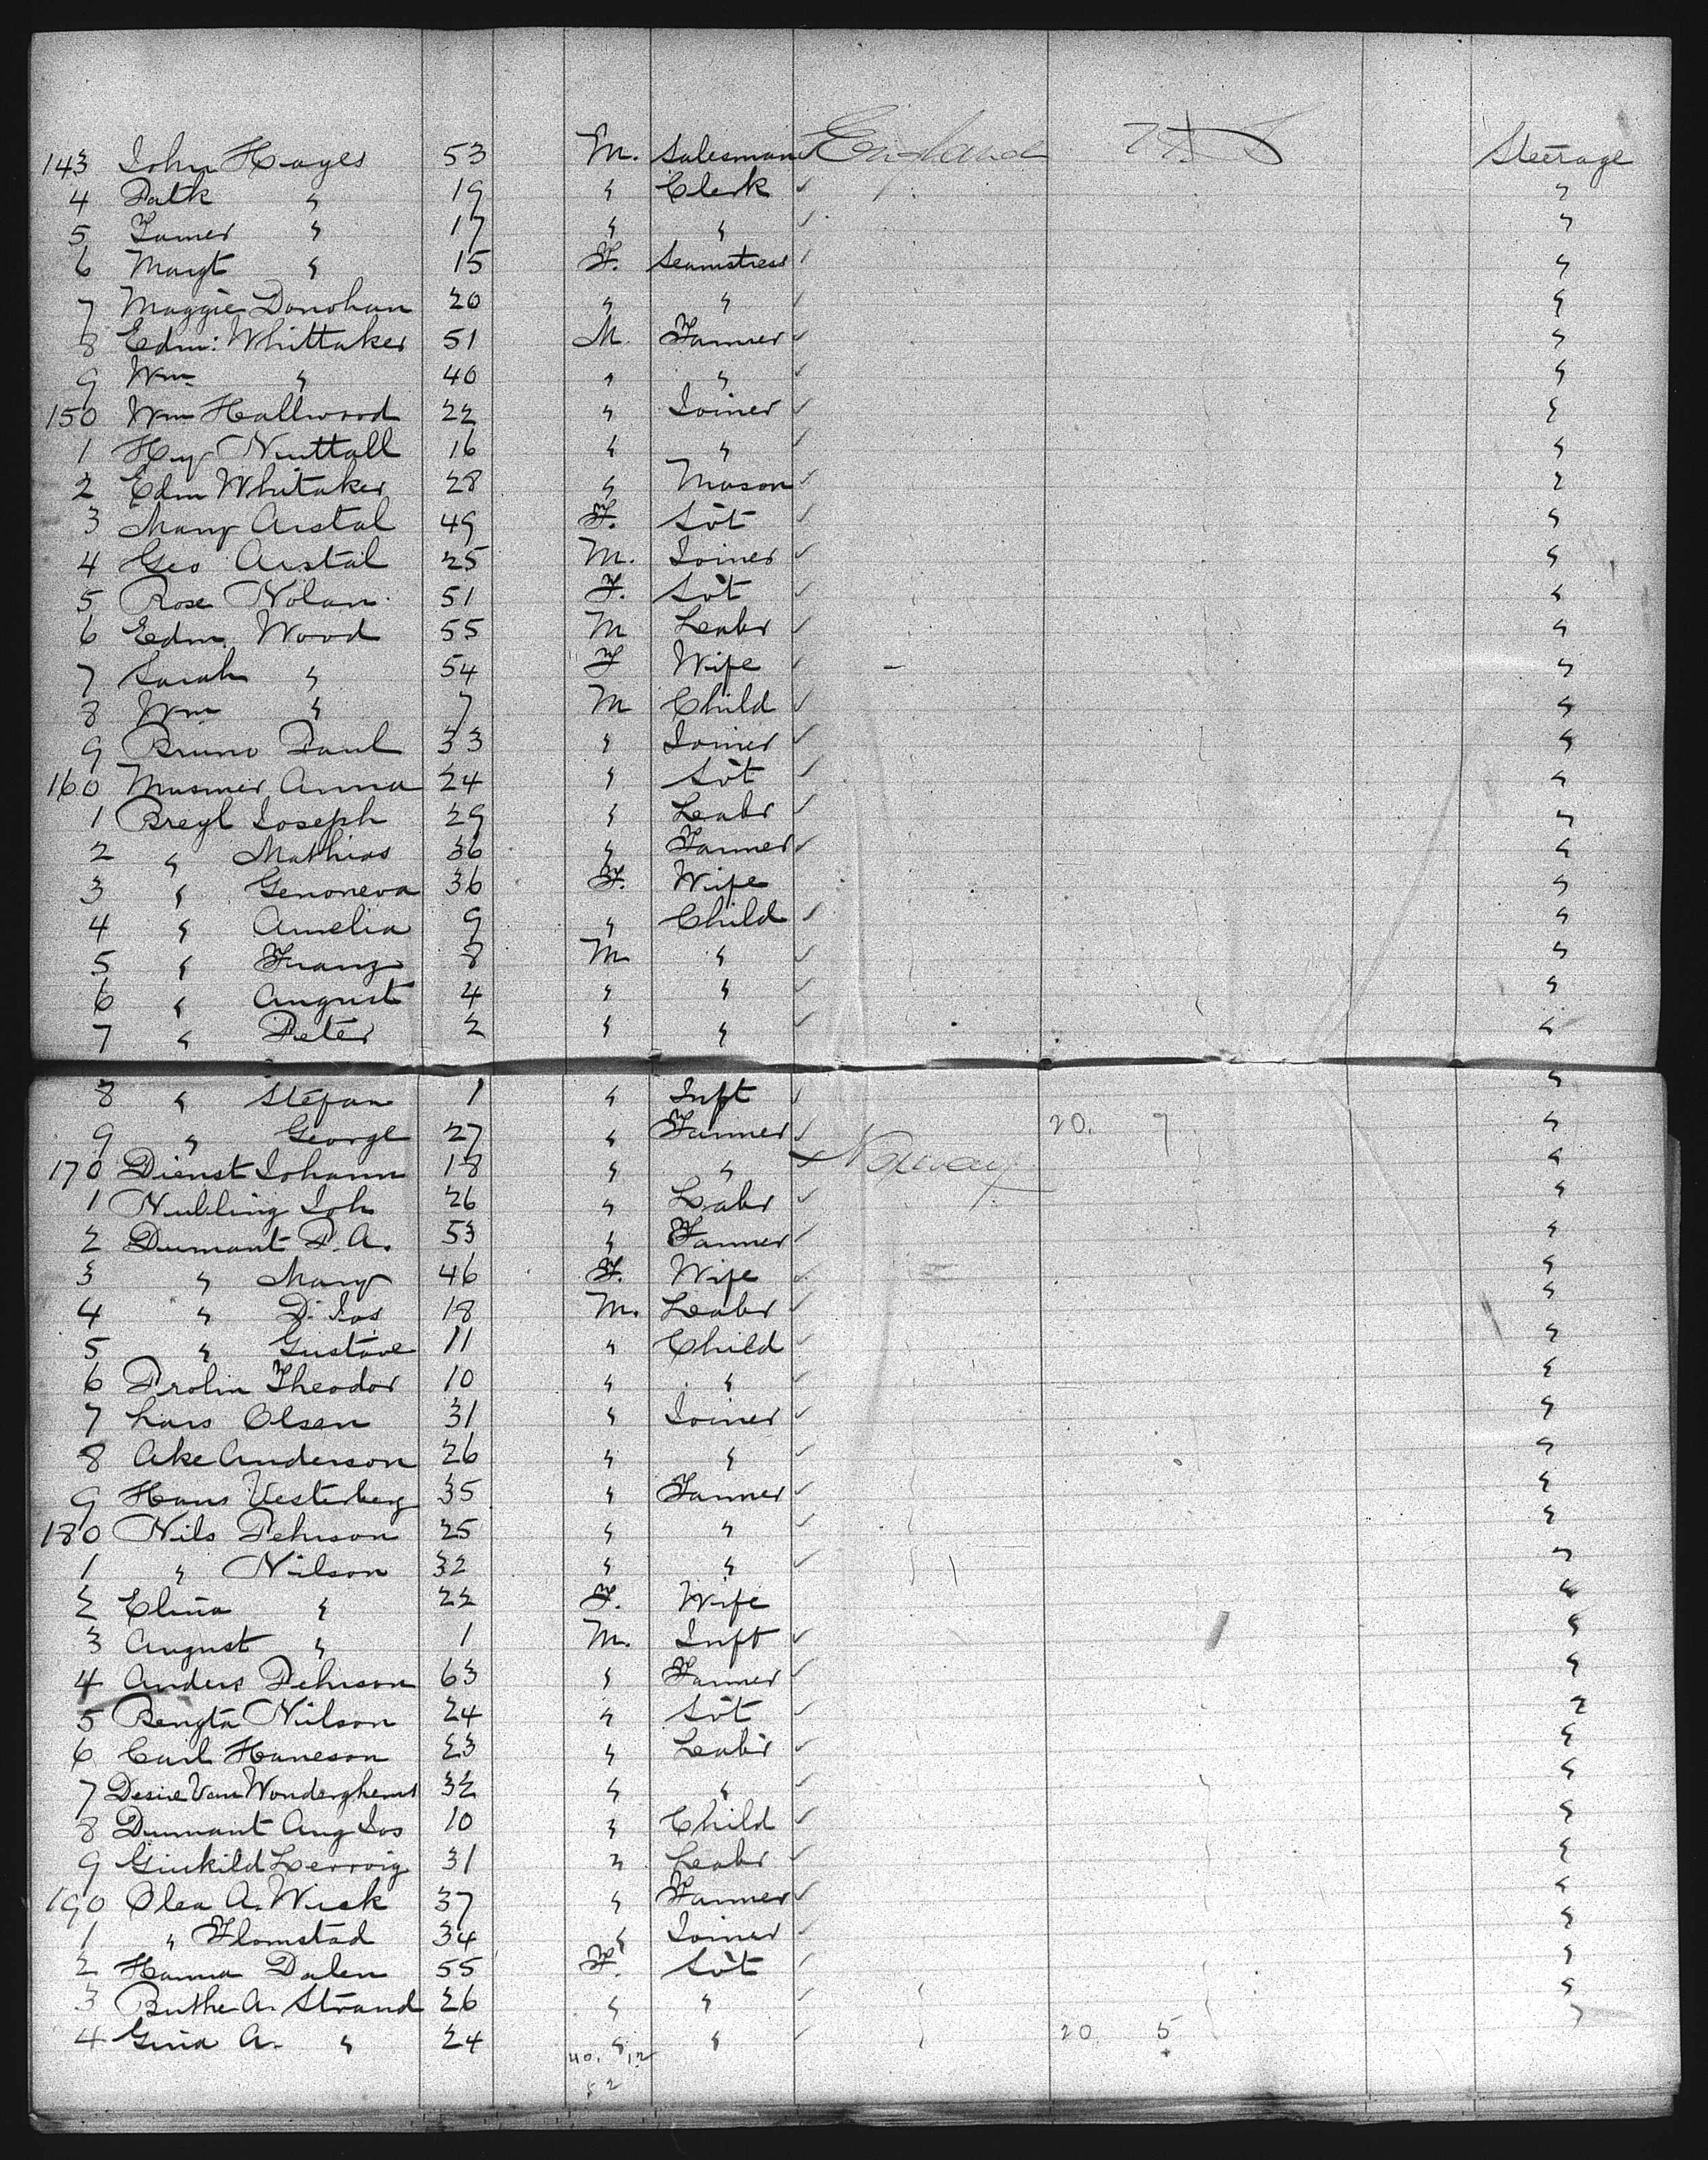 143 John Hayes 53 M. Salesman England U.S. Steerage
4 Patk " 19 " Clerk "
5 James " 17 " " "
6 Margt " 15 F. Seamstress "
7 Maggie Donohan 20 " " "
8 Edm: Whittaker 51 M. Farmer "
9 Wm " 40 " " "
150 Wm Hallwood 22 " Joiner "
1 Hy Nuttall 16 " " "
2 Edm Whitaker 28 " Mason "
3 Mary Aistal 49 F. Svt "
4 Geo Aistal 25 M. Joiner "
5 Rose Nolan 51 F. Svt "
6 Edm. Wood 55 M Labr "
7 Sarah " 54 F Wife "
8 Wm " 7 M Child "
9 Bruno Paul 33 " Joiner "
160 Musmer Anna 24 " Svt "
1 Bregl Joseph 29 " Labr "
2 " Mathias 36 " Farmer "
3 " Genoneva 36 F. Wife "
4 " Amelia 9 " Child "
5 " Franz 8 M " "
6 " August 4 " " "
7 " Peter 2 " " "
8 " Stefan 1 " Inft "
9 " George 27 " Farmer 20. 7 "
170 Dienst Johann 18 " " Norway "
1 Nubling Joh 26 " Labr "
2 Dumont P. A. 53 " Farmer "
3 " Mary 46 F. Wife "
4 " D. Jos 18 M. Labr "
5 " Gustave 11 " Child "
6 Prolin Theodor 10 " " "
7 Lars Olsen 31 " Joiner "
8 Ake Anderson 26 " " "
9 Hans Vesterberg 35 " Farmer "
180 Nils Pehrson 25 " " "
1 " Nilson 32 " " "
2 Elina " 22 F. Wife "
3 August " 1 M. Inft "
4 Anders Pehrson 63 " Farmer "
5 Bengta Nilson 24 " Svt "
6 Carl Haneson 23 " Labr "
7 Desire Van Wonderghems 32 " " "
8 Dumant Aug Jos 10 " Child "
9 Ginkild Lervoig 31 " Labr "
190 Olea A. Wick 37 " Farmer "
1 " Flomstad 34 " Joiner "
2 Hanna Dalen 55 F. Svt "
3 Buthe A. Strand 26 " " "
4 Gina A. " 24 " " 20. 5 "
40. 12
52